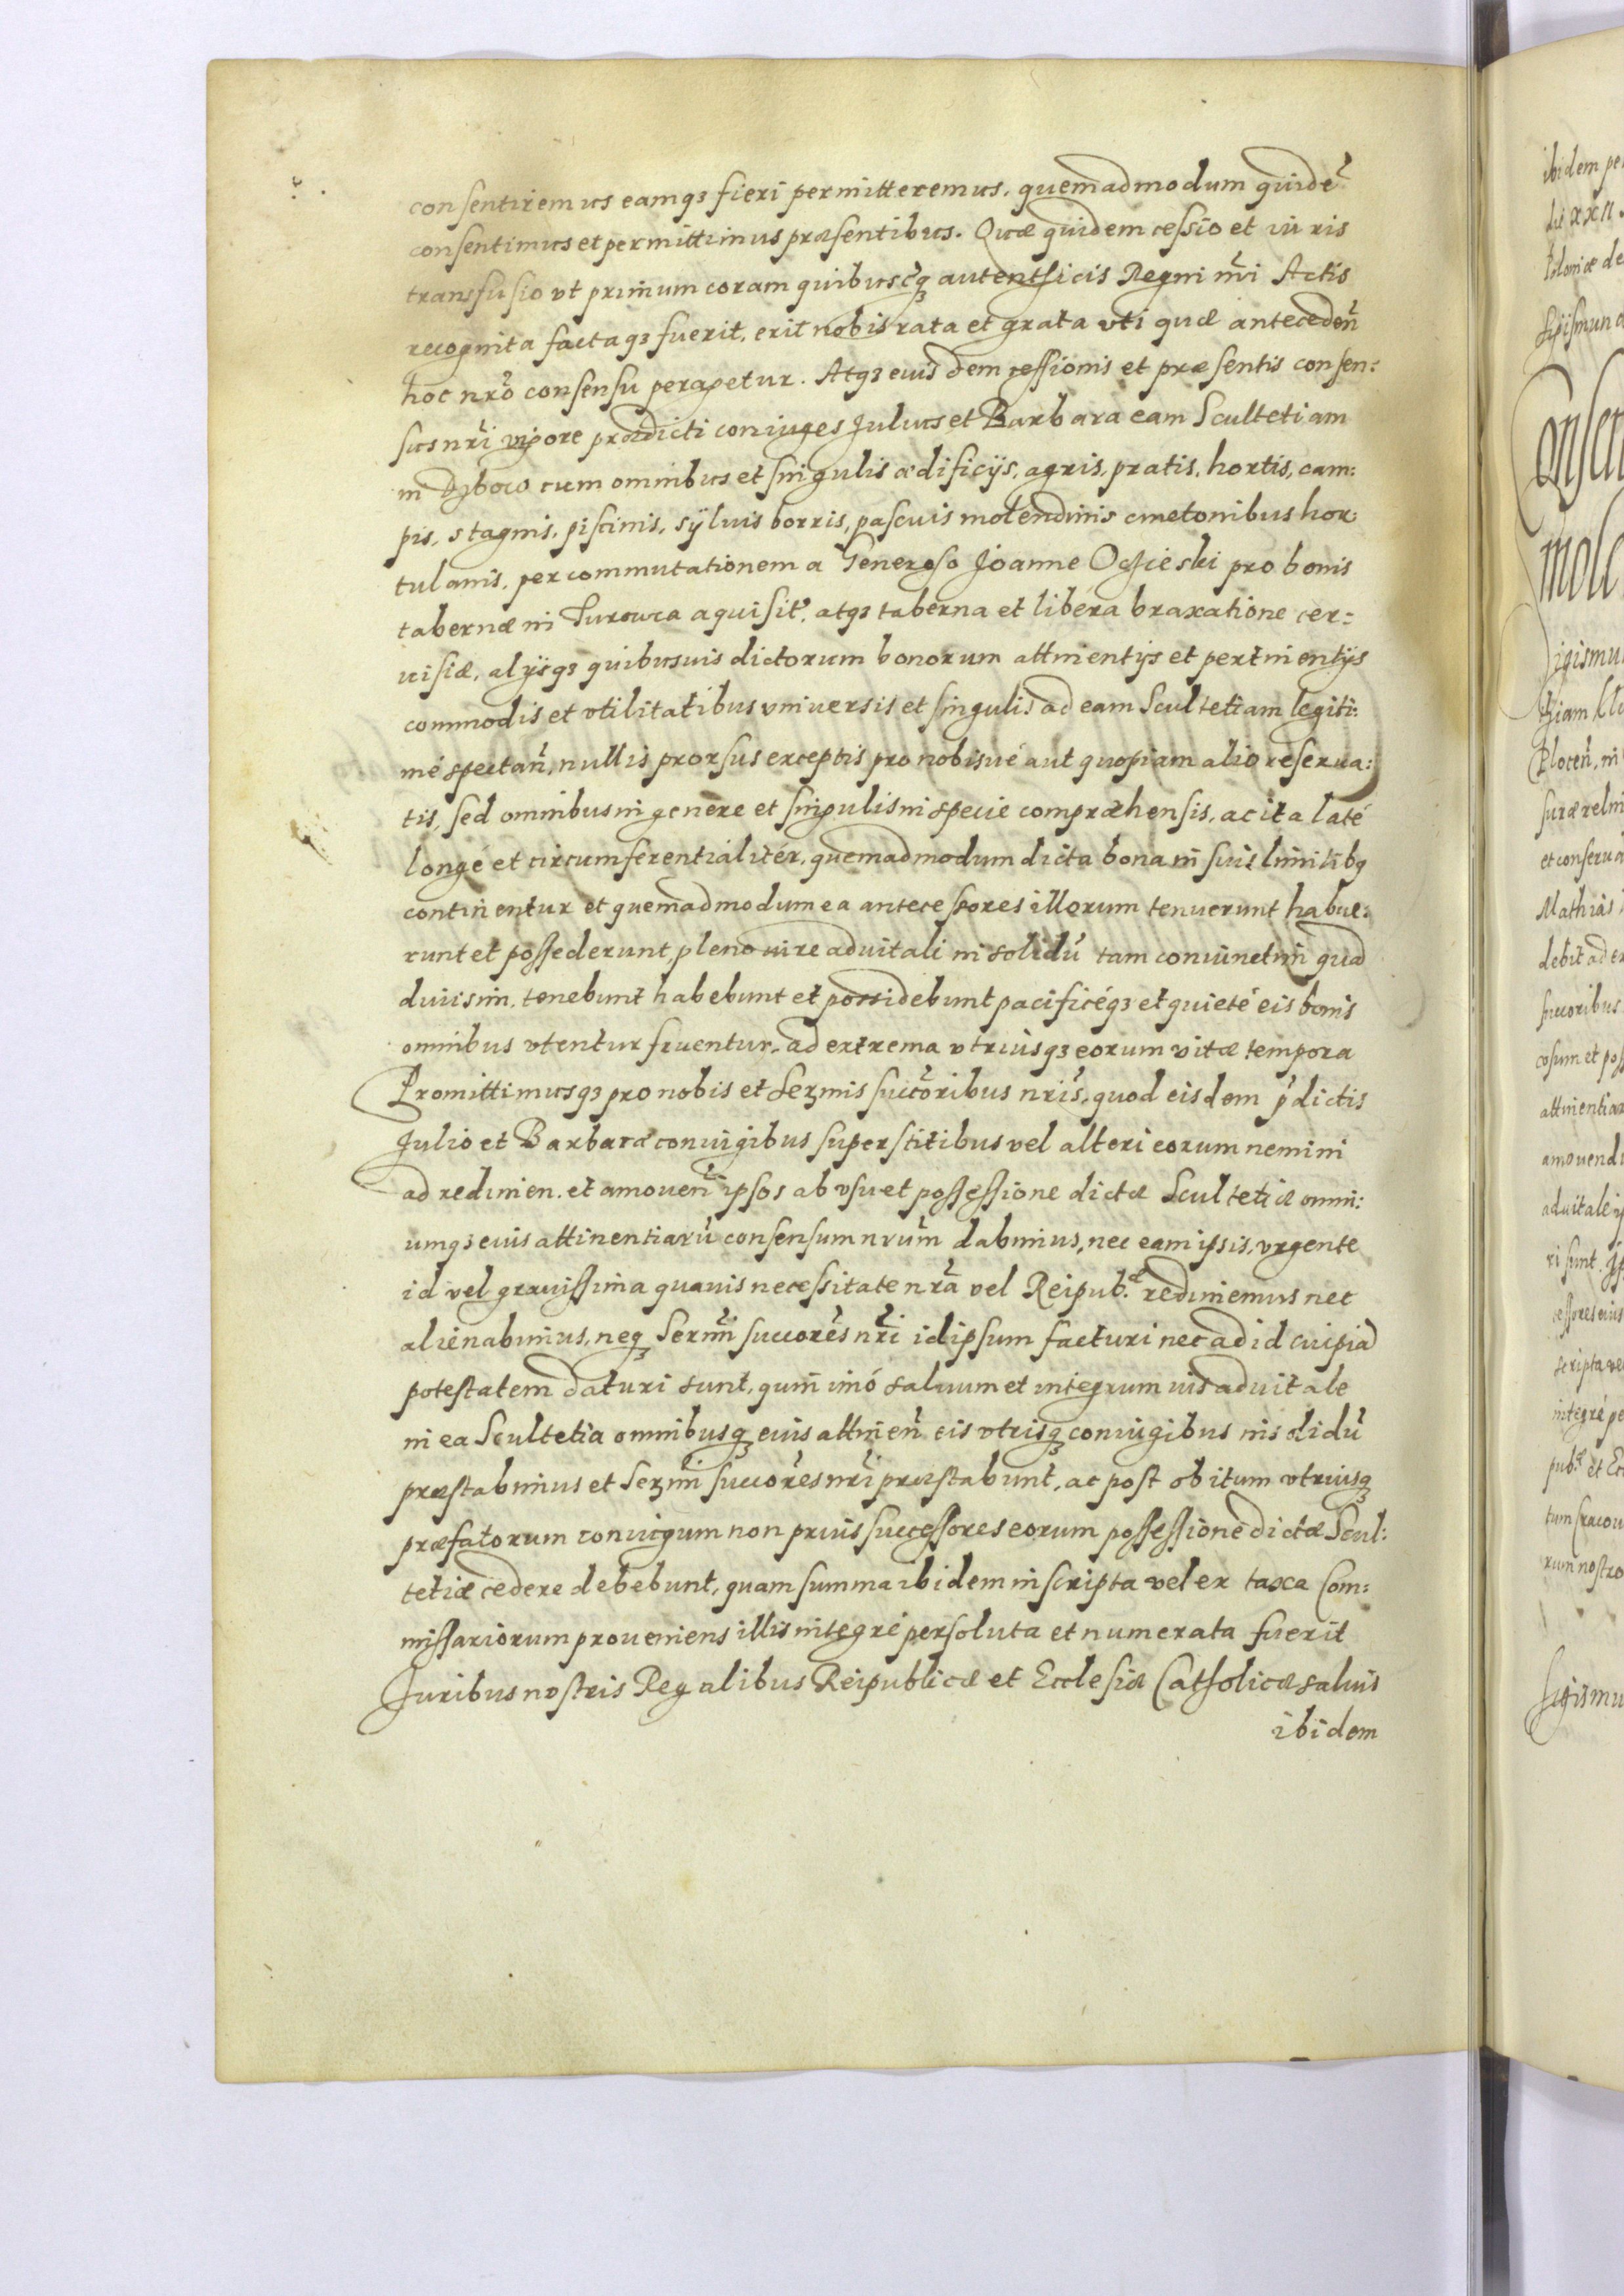 consentiremus eamq3 fieri permitteremus, quemadmodum quidē
consentimus et permittimus præsentibus. Quæ quidem cessio et iuris
transfusio vt primum coram quibuscq3 autenthicis Regni nr̄i Actis
recognita factaq3 fuerit, erit nobis rata et grata vti quæ anteceden̄
hoc nr̄o consensu peragetur. Atq3 eiusdem cessionis et præsentis consen:
sus nr̄i vigore prædicti coniuges Julius et Barbara eam Scultetiam
in Dzbow cum omnibus et singulis ædificijs, agris, pratis, hortis, cam:
pis, stagnis, piscinis, sÿluis borris, pascuis molendinis cmetonibus hor:
tulanis, per commutationem a Generoso Joanne Ocieski pro bonis
tabernæ in aquisit', atq3 taberna et libera braxatione cer:
uisiæ, alijsq3 quibusuis dictorum bonorum attinentijs et pertinentijs
commodis et vtilitatibus vniuersis et singulis ad eam Scultetiam legiti:
mé spectan̄, nullis prorsus exceptis pro nobisué aut quopiam alio reserua:
tis, sed omnibus in genere et singulis in specie compræhensis, ac ita laté
longé et circumferentialitér, quemadmodum dicta bona in suis limitibq
continentur et quemadmodum ea antecessores illorum tenuerunt habue:
runt et possederunt, pleno iure aduitali in solidū tam coniunctim quā
diuisim, tenebunt habebunt et possidebunt pacificéq3 et quieté eis bonis
omnibus vtentur fruentur, ad extrema vtriusq3 eorum vitæ tempora
Promittimusq3 pro nobis et Serm̄is succ̄oribus nr̄is, quod eisdem p̄dictis
Julio et Barbaræ coniugibus superstitibus vel alteri eorum nemini
ad redimen. et amouen̄ ipsos ab vsu et possessione dictæ Scultetiæ omni:
umq3 eius attinentiarū consensum nr̄um dabimus, nec eam ipsis, vrgente
id vel grauissima quauis necessitate nr̄a vel Reipub.æ redimemus nec
alienabimus, neq3 Serm̄i succores nr̄i idipsum facturi nec ad id cuipiā
potestatem daturi sunt, quin̄ imó saluum et integrum ius aduitale
in ea Scultetia omnibusq3 eius attinen̄ eis vtrisq3 coniugibus insolidū
præstabimus et Serm̄i succores nr̄i præstabunt, ac post obitum vtriusq3
præfatorum coniugum non prius successores eorum possessione dictæ Scul:
tetiæ cedere debebunt, quam summa ibidem inscripta vel ex taxa Com:
missariorum proueniens illis integré persoluta et numerata fuerit
Juribus nostris Regalibus Reipublicæ et Ecclesiæ Catholicæ saluis
ibidem